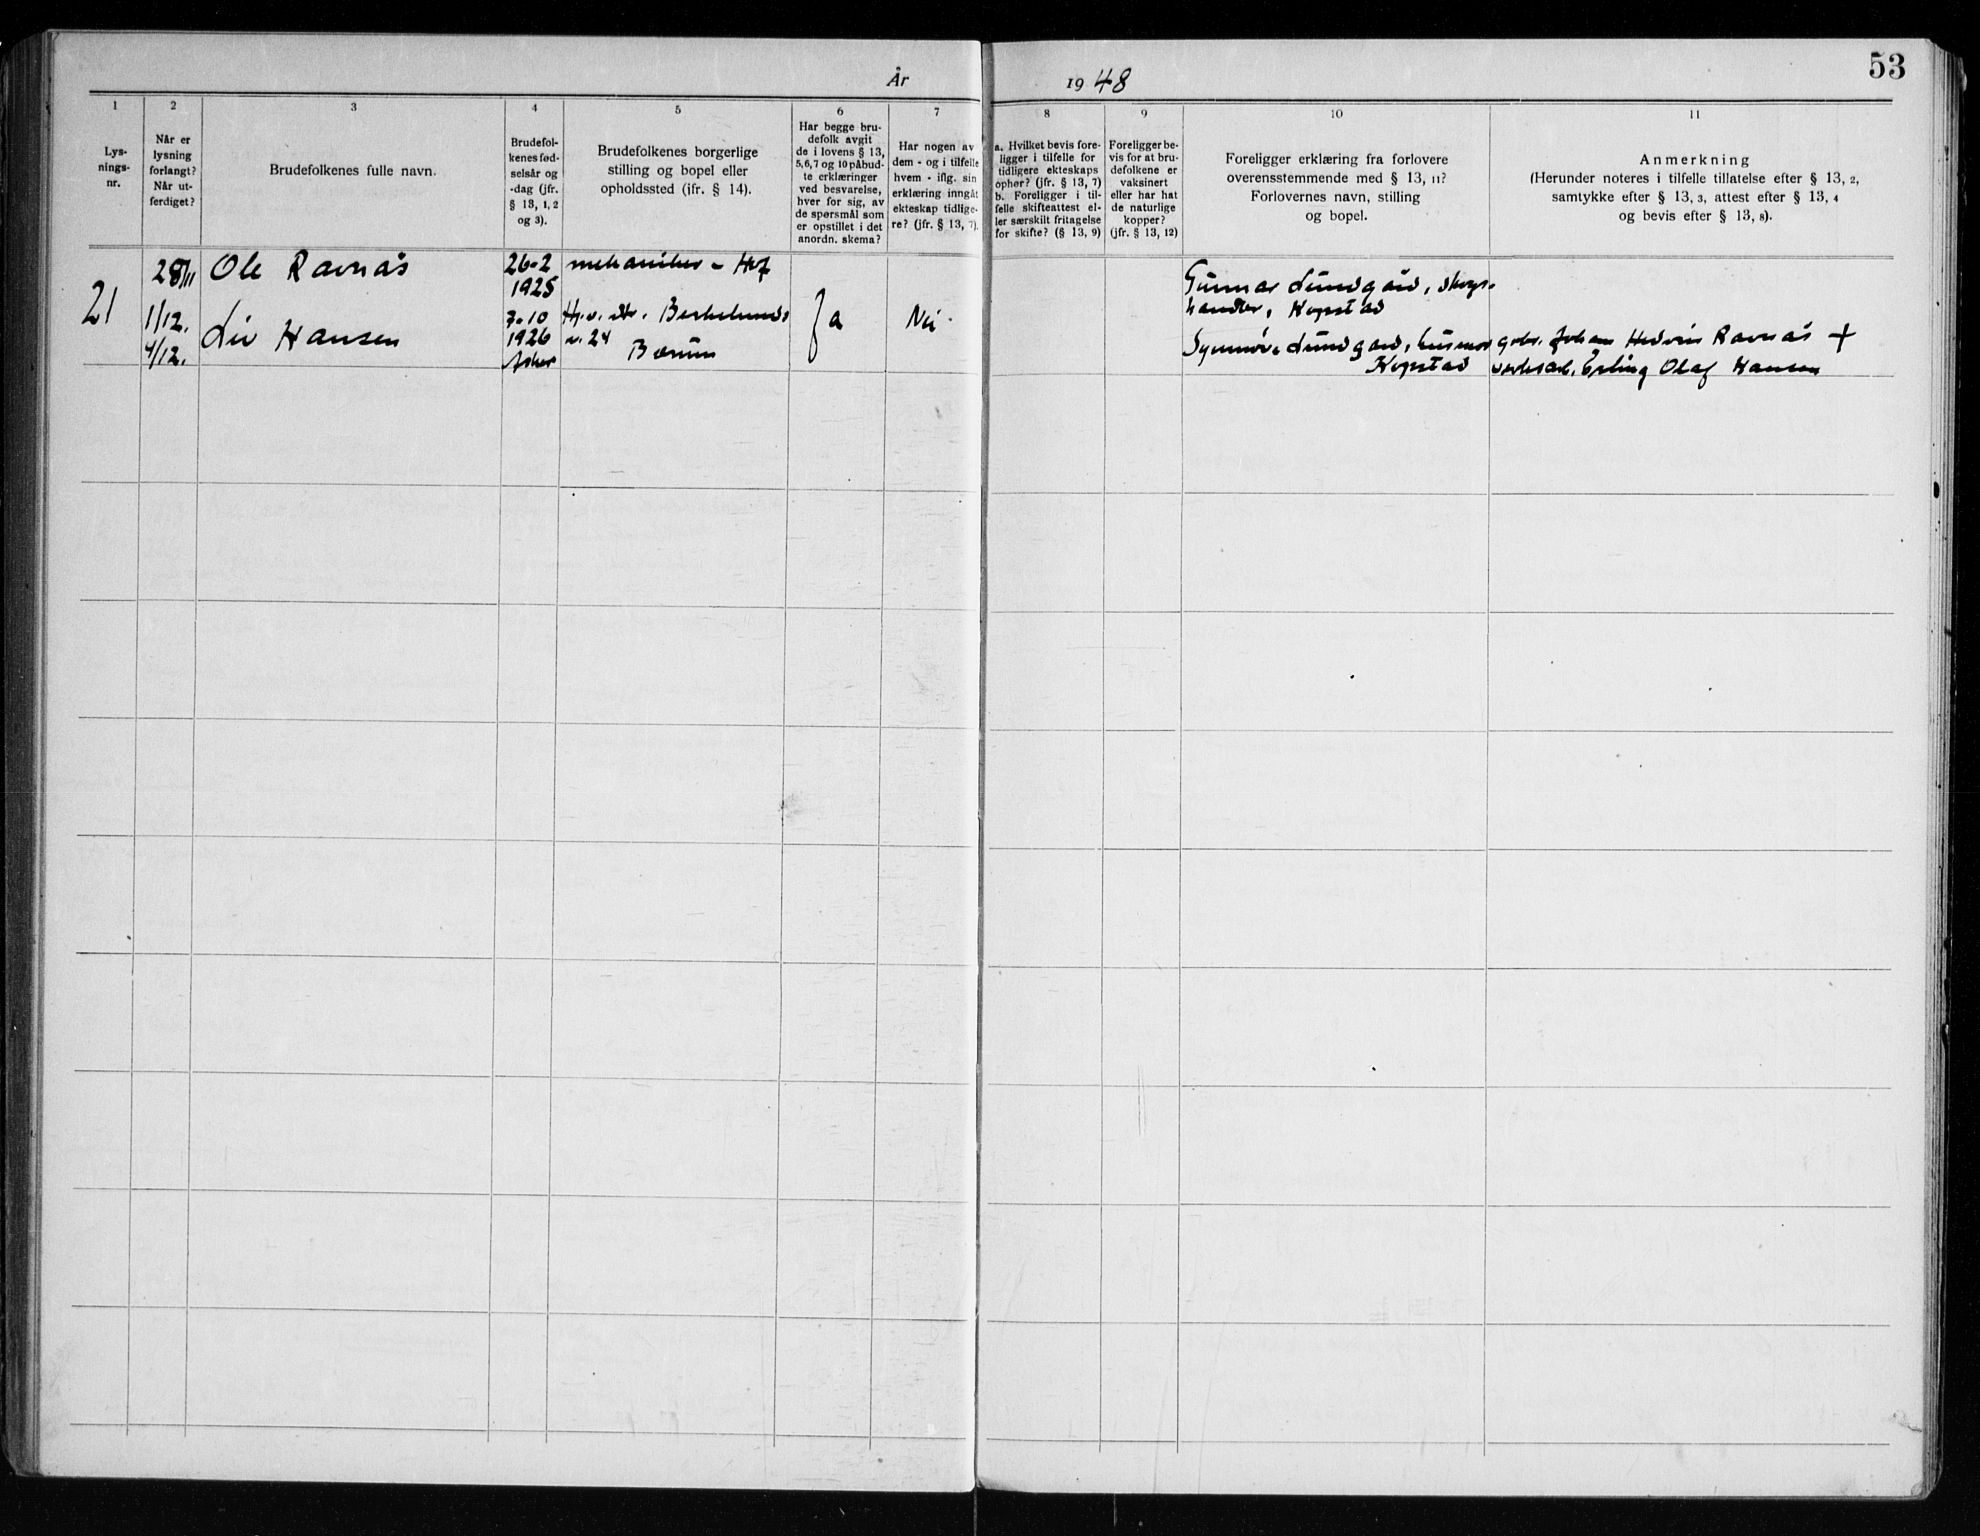 53
År
19 48
1
Lys-
nings-
nr.
2
Når er
lysning
forlangt?
Når ut-
ferdiget?
3
Brudefolkenes fulle navn.
4
Brudefol-
kenes fød-
selsår og
-dag (jfr.
§ 13, 1, 2
og 3).
5
Brudefolkenes borgerlige
stilling og bopel eller
opholdssted (ifr. § 14).
6
Har begge bru-
defolk avgit
de i lovens § 13,
5,6,7 og 10 påbud-
te erklæringer
ved besvarelse,
hver for sig, av
de spørsmål som
er opstillet i det
anordn. skema?
7
Har nogen av
dem - og i tilfelle
hvem - iflg. sin
erklæring inngåt
ekteskap tidlige-
re? (jfr. § 13, 7).
8
a. Hvilket bevis fore-
ligger i tilfelle for
tidligere ekteskaps
ophør? (jfr. § 13, 7)
b. Foreligger i til-
felle skifteattest el-
ler særskilt fritagelse
for skifte? (§ 13, 9)
9
Foreligger be-
vis for at bru-
defolkene er
vaksinert
eller har hat
de naturlige
kopper?
(jfr. § 13, 12)
10
Foreligger erklæring fra forlovere
overensstemmende med § 13, 11?
Forlovernes navn, stilling
og bopel.
11
Anmerkning
(Herunder noteres i tilfelle tillatelse efter § 13, 2,
samtykke efter § 13, 3, attest efter § 13, 4
og bevis efter § 13, 8).
21
28/11
1/12.
4/12.
Ole Ravnås
Liv Hansen
26-2
1925
7-10
1926
Asker
mekaniker - Hof
v. 24
Bærum
Ja
Nei
Gunnar Lundgård,
handler, Kopstad
Synnøve Lundgård, husmor
Kopstad
gbr. Johan Hedvin Ravnås +
Erling Olaf Hansen